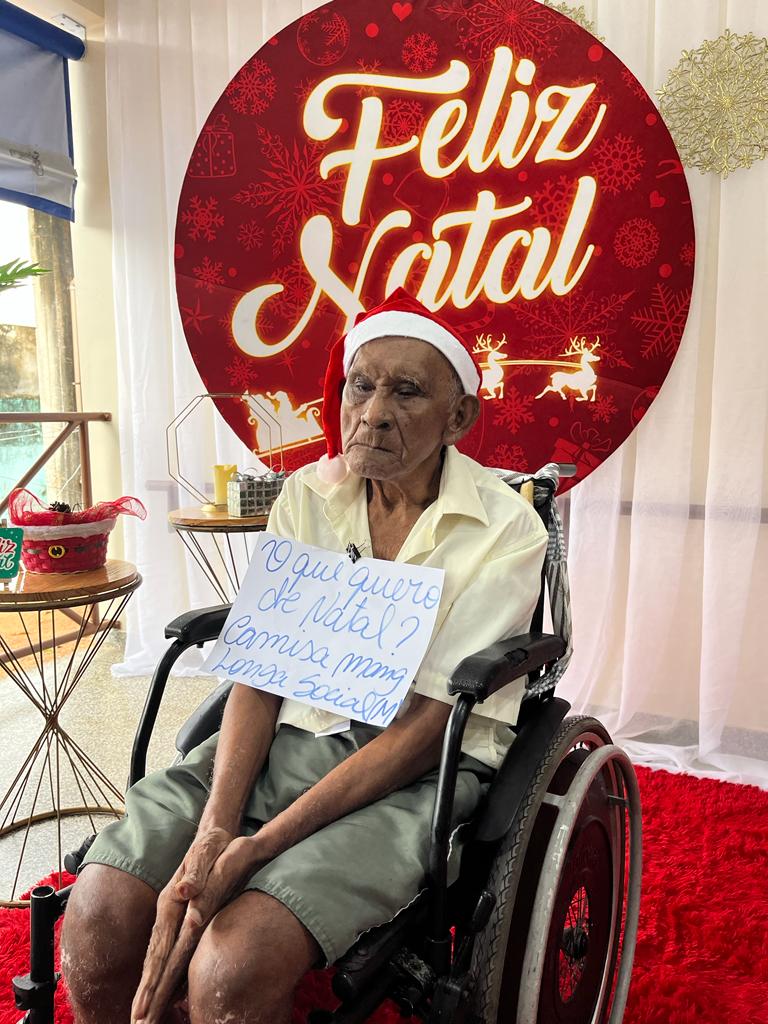 Feliz
Natal
O que quero
de Natal?
Camisa mang
Longa Social (M)
liz